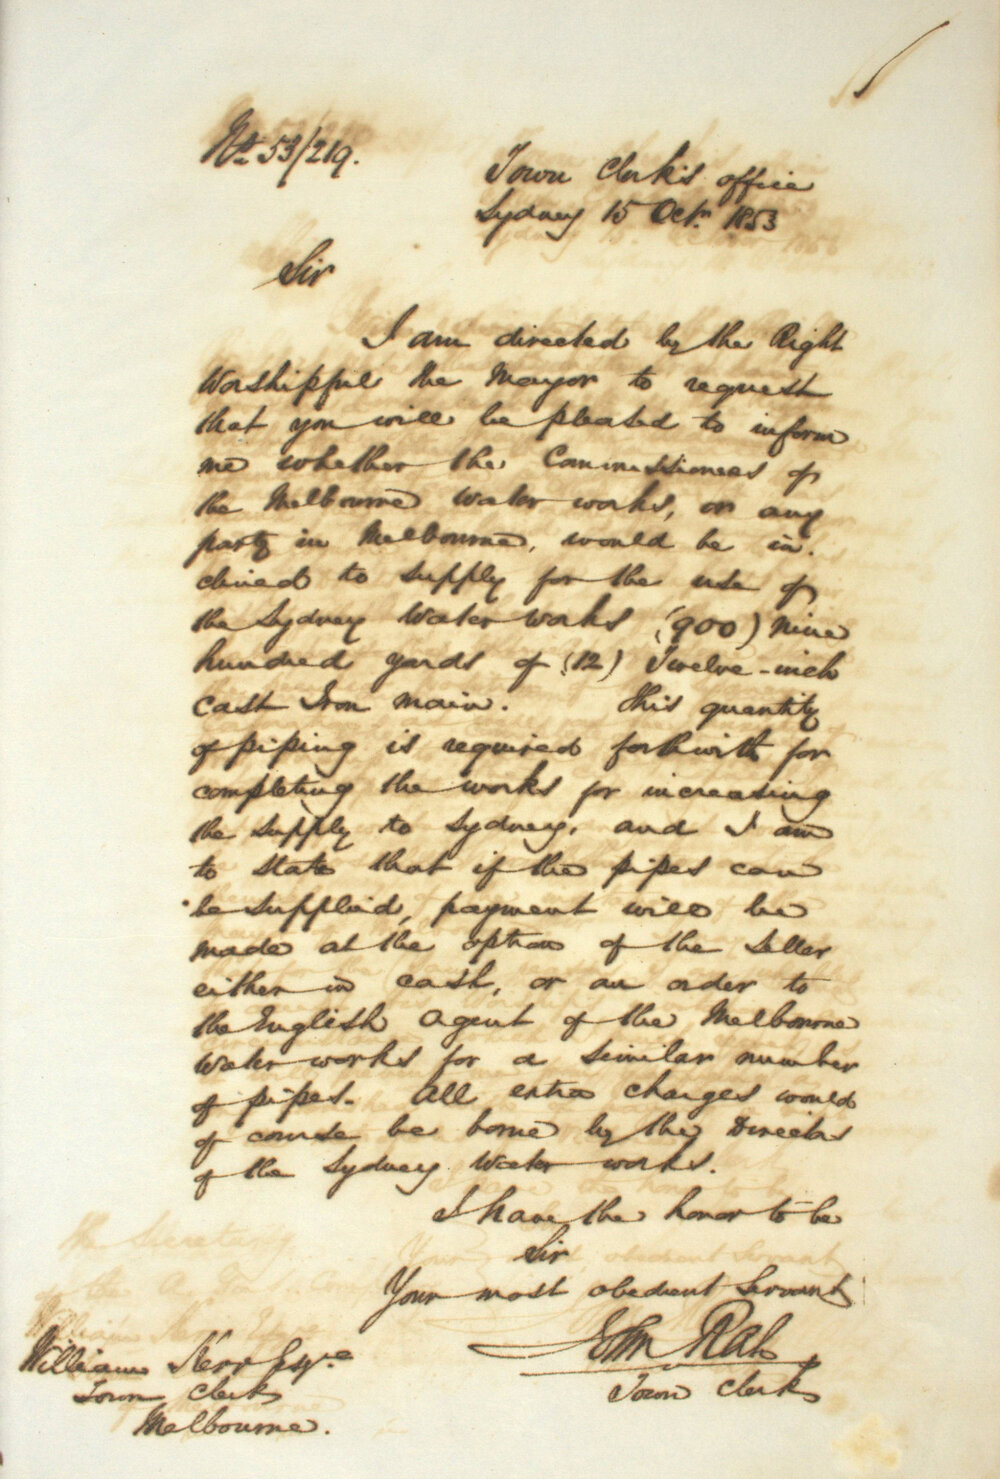 No. 53/219.
Town Clerk's office
Sydney 15 Octr. 1853
Sir
I am directed by the Right
Worshipful the Mayor to request
that you will be pleased to inform
me whether the Commissioners of
the Melbourne Water works, or any
party in Melbourne, would be in-
clined to supply for the use of
the Sydney Water works (900) Nine
hundred yards of (12) Twelve-inch
Cast Iron main. This quantity
of piping is required forthwith for
completing the works for increasing
the supply to Sydney, and I am
to state that if the pipes can
be supplied, payment will be
made at the option of the Seller
either in cash, or an order to
the English Agent of the Melbourne
Water works for a similar number
of pipes. All extra charges would
of course be borne by the Directors
of the Sydney Water works.
I have the honor to be
Sir
Your most obedient Servant
John Rae
Town Clerk
William Kerr Esqre
Town Clerk
Melbourne.